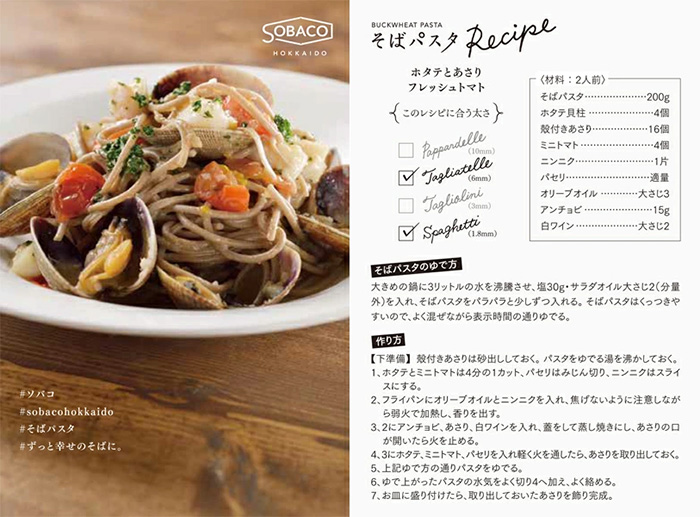 SOBACO
HOKKAIDO
#ソバコ
#sobacohokkaido
#そばパスタ
#ずっと幸せのそばに。
BUCKWHEAT PASTA
そばパスタ Recipe
ホタテとあさり
フレッシュトマト
このレシピに合う太さ
Pappardelle
(10mm)
Tagliatelle
(6mm)
Tagliolini
(3mm)
Spaghetti
(1.8mm)
〈材料：2人前〉
そばパスタ…………………200g
ホタテ貝柱…………………4個
殻付きあさり………………16個
ミニトマト…………………4個
ニンニク……………………1片
パセリ………………………適量
オリーブオイル…………大さじ3
アンチョビ…………………15g
白ワイン………………大さじ2
そばパスタのゆで方
大きめの鍋に3リットルの水を沸騰させ、塩30g・サラダオイル大さじ2（分量
外）を入れ、そばパスタをパラパラと少しずつ入れる。そばパスタはくっつきや
すいので、よく混ぜながら表示時間の通りゆでる。
作り方
【下準備】 殻付きあさりは砂出ししておく。パスタをゆでる湯を沸かしておく。
1、ホタテとミニトマトは4分の1カット、パセリはみじん切り、ニンニクはスライ
スにする。
2、フライパンにオリーブオイルとニンニクを入れ、焦げないように注意しなが
ら弱火で加熱し、香りを出す。
3、2にアンチョビ、あさり、白ワインを入れ、蓋をして蒸し焼きにし、あさりの口
が開いたら火を止める。
4、3にホタテ、ミニトマト、パセリを入れ軽く火を通したら、あさりを取り出しておく。
5、上記ゆで方の通りパスタをゆでる。
6、ゆで上がったパスタの水気をよく切り4へ加え、よく絡める。
7、お皿に盛り付けたら、取り出しておいたあさりを飾り完成。